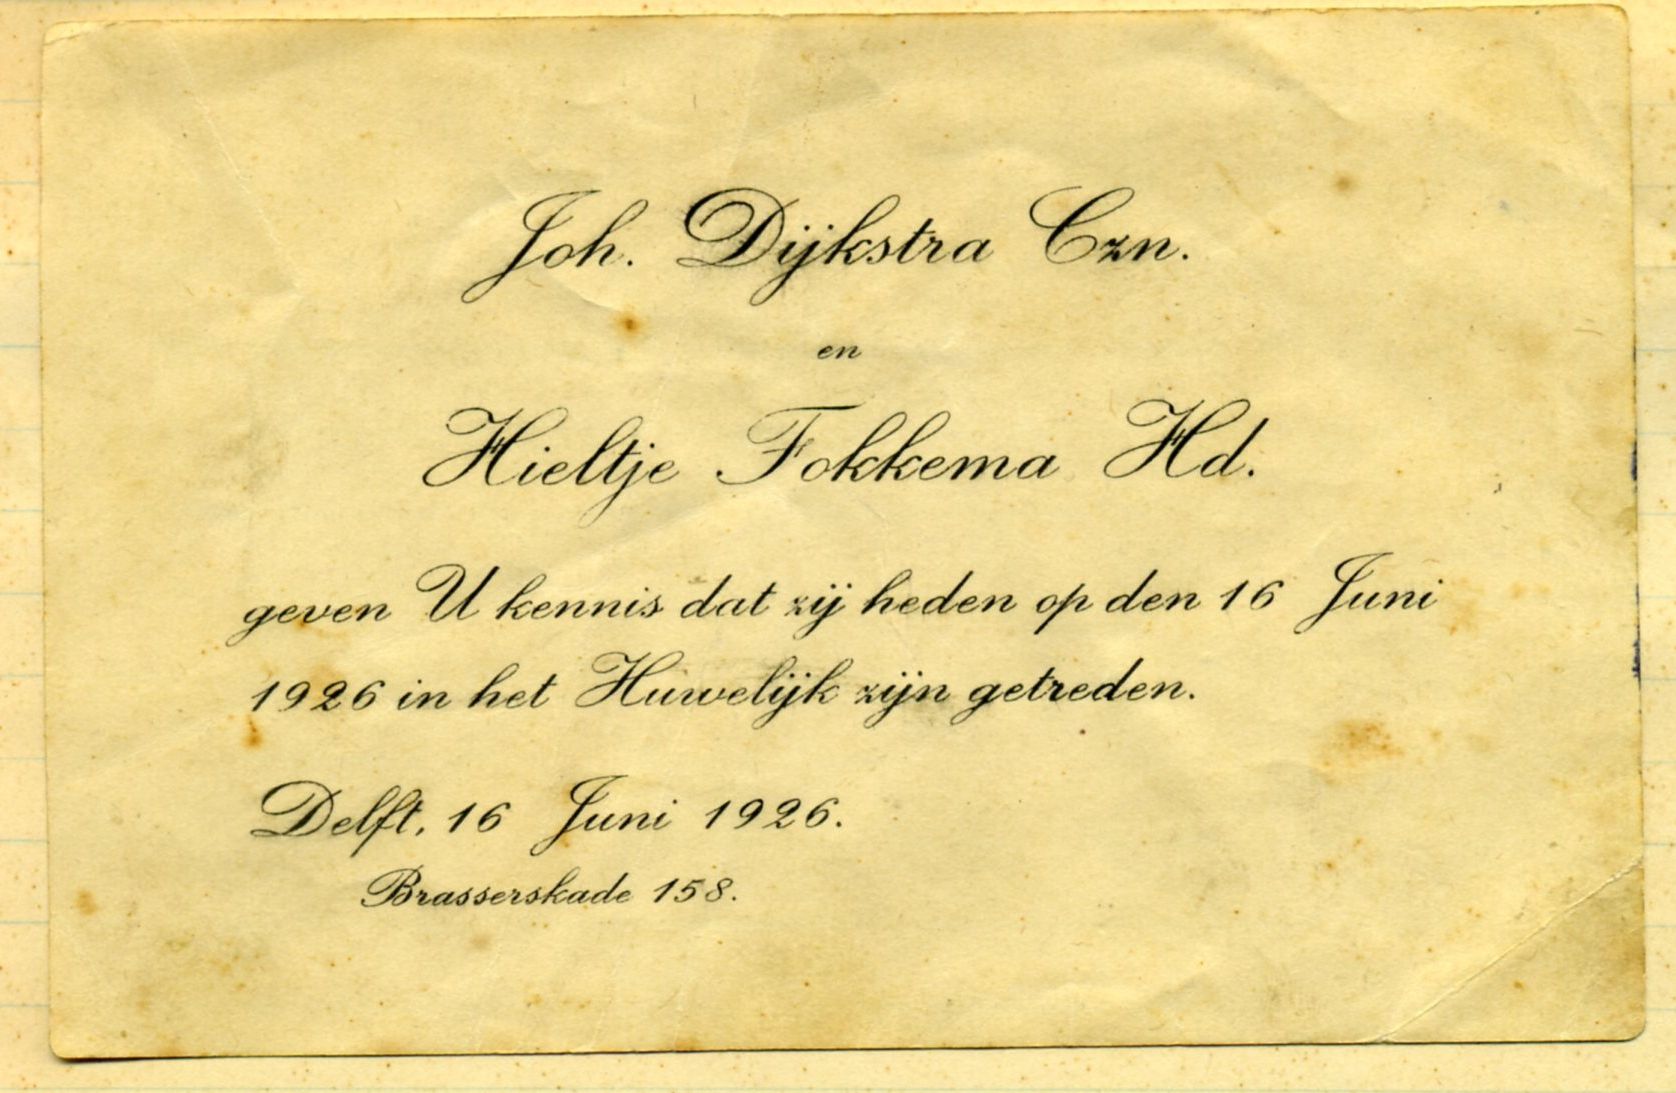 Joh. Dijkstra Czn.
en
Hieltje Fokkema Hd.
geven U kennis dat zij heden op den 16 Juni
1926 in het Huwelijk zijn getreden.
Delft, 16 Juni 1926.
Brasserskade 158.